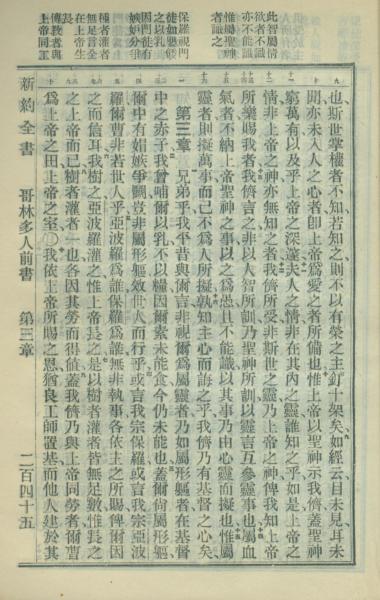 此智屬情
欲者不識
亦不能識
惟屬聖神
者識之
保羅視門
徒如嬰孩
之以乳
因門徒有
嫉妒分爭
種者灌者
無足言全
在上帝生
長
傳教者與
上帝同工
也斯世掌權者不知若知之則不以有榮之主釘十架矣如經云目未見耳未
聞亦未入人之心者卽上帝爲愛之者所備也惟上帝以聖神示我儕蓋聖神
窮萬有以及乎上帝之深邃夫人之情非在其內之靈誰知之乎如是上帝之
情非上帝之神亦無知之者我儕所受非斯世之靈乃上帝之神俾我知上帝
所樂賜我者我儕言之非以人智所訓乃聖神所訓以靈言互參靈事也屬血
氣者不納上帝聖神之事以之爲愚且不能識以其事乃由心靈而擬也惟屬
靈者則擬萬事而己不爲人所擬孰知主心而誨之乎我儕乃有基督之心矣
第三章 兄弟乎我平昔與爾言非視爾爲屬靈者乃如屬形軀者在基督
中之赤子我曾哺爾以乳不以糧因爾素未能食今仍未能也蓋爾尙屬形軀
爾中有媢嫉爭鬬豈非屬形軀效世人而行乎或言我宗保羅或言我宗亞波
羅爾曹非若世人乎亞波羅爲誰保羅爲誰無非執事各依主之所賜俾爾因
之而信耳我樹之亞波羅灌之惟上帝長之是以樹者灌者皆無足數惟長之
之上帝而已樹者灌者一也各因其勞而得値蓋我儕乃與上帝同勞者爾曹
爲上帝之田上帝之室〇我依上帝所賜之恩猶良工師置基而他人建於其
新約全書 哥林多人前書 第三章 二百四十五